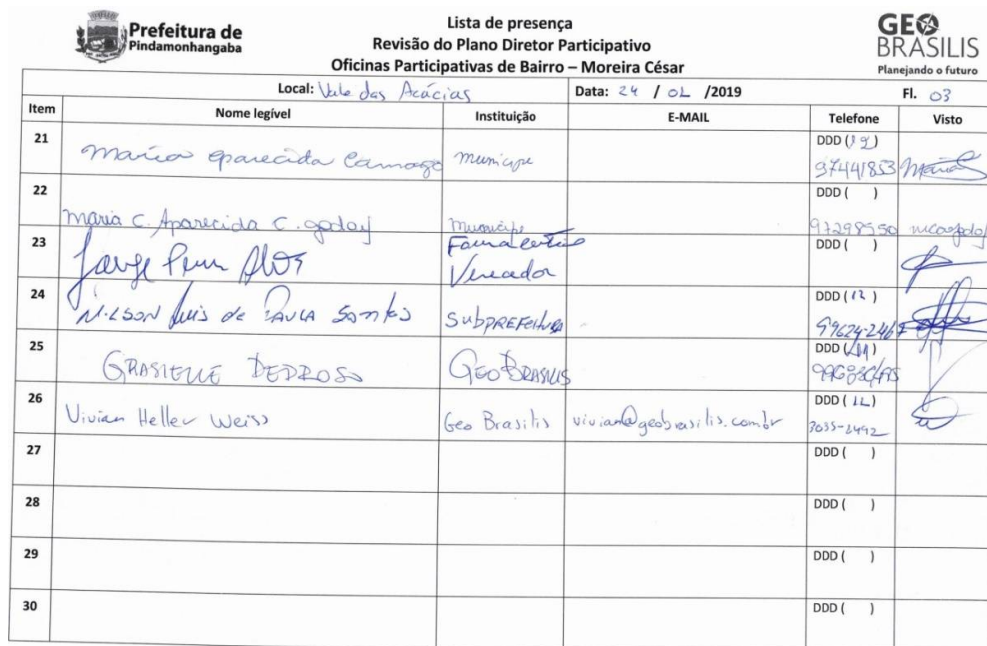 Prefeitura de
Pindamonhangaba
Lista de presença
Revisão do Plano Diretor Participativo
Oficinas Participativas de Bairro – Moreira César
GEO
BRASILIS
Planejando o futuro
Local: Vale das Acácias Data: 24 / 01 /2019 Fl. 03
Item Nome legível Instituição E-MAIL Telefone Visto
21 Maria Aparecida Camargo Munícipe DDD (12) 97441853
22 Maria C. Aparecida C. Godoy Munícipe DDD ( ) 97298550
23 Vereador DDD ( )
24 Nilson Luis de Paula Santos Subprefeitura DDD (12)
25 GRASIELLE PEDROSO GeoBrasilis DDD
26 Vivian Heller Weiss Geo Brasilis vivian@geobrasilis.com.br DDD
27 DDD ( )
28 DDD ( )
29 DDD ( )
30 DDD ( )